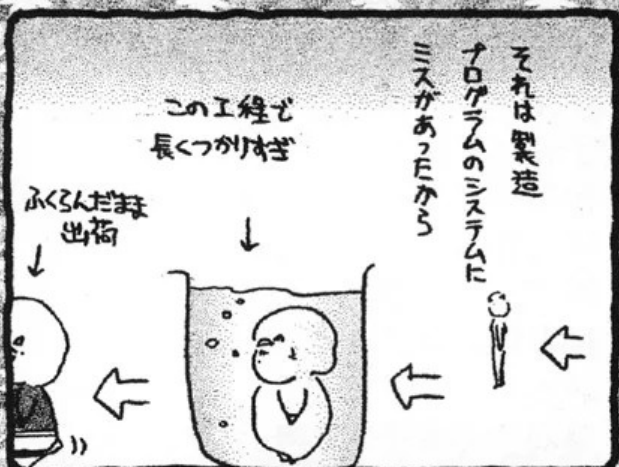 それは製造
プログラムのシステムに
ミスがあったから
この工程で
長くつかりすぎ
ふくらんだまま
出荷